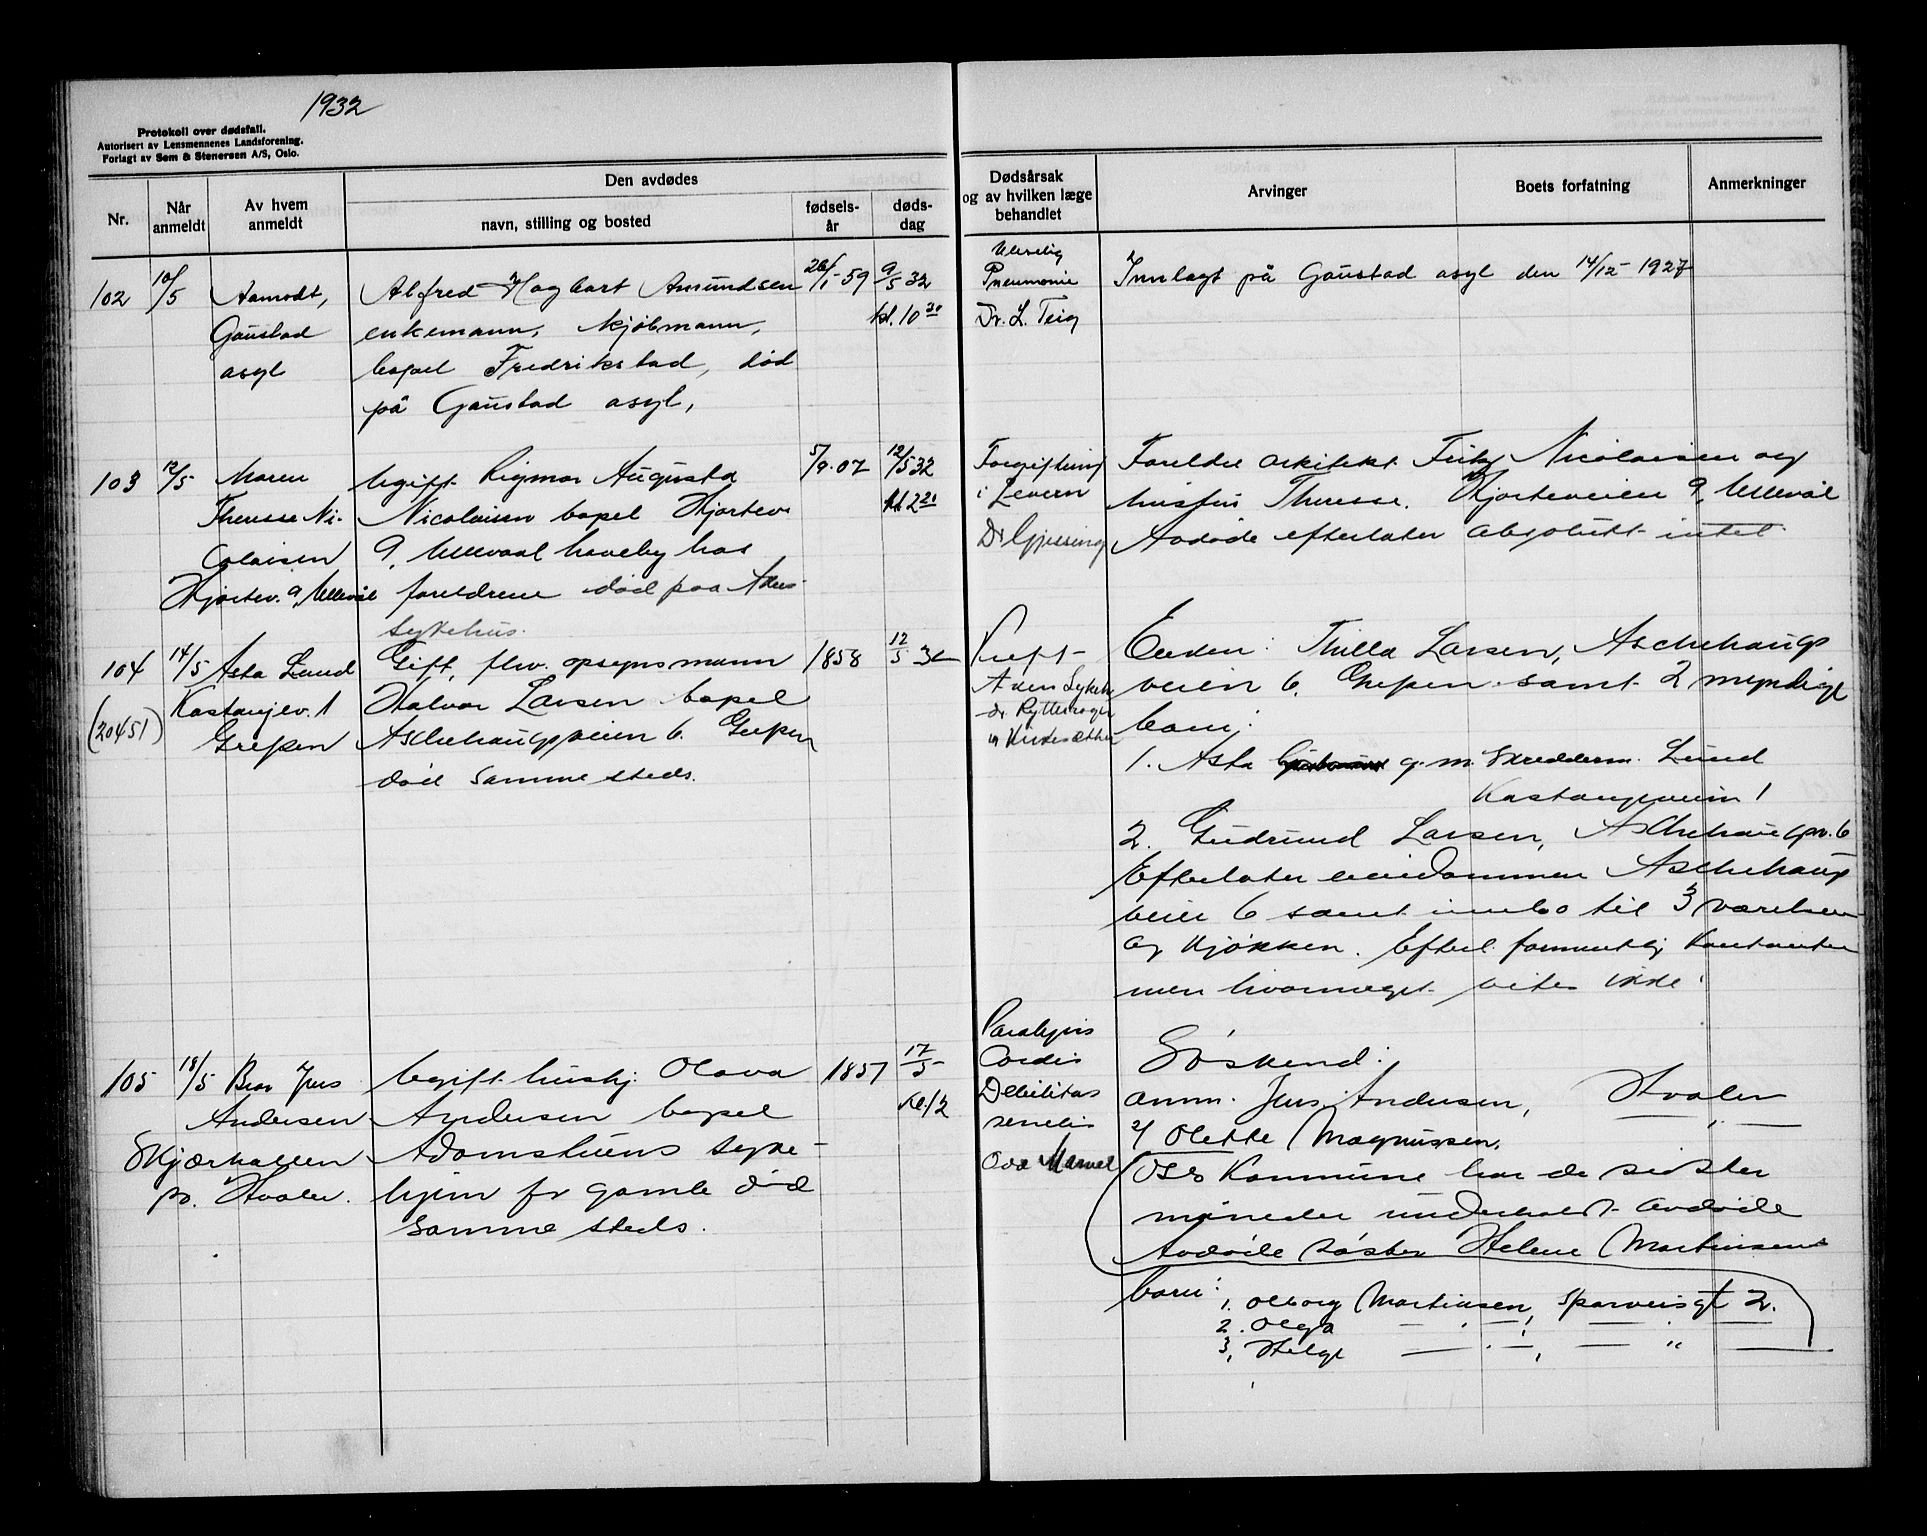 1932
Protokoll over dødsfall.
Autorisert av Lensmennenes Landsforening.
Forlagt av Sem & Stenersen A/S, Oslo.
Nr.
Når anmeldt
Av hvem anmeldt
Den avdødes
navn, stilling og bosted
fødsels-år
døds-dag
Dødsårsak og av hvilken læge behandlet
Arvinger
Boets forfatning
Anmerkninger
102
10/5
Aamodt,
Gaustad
asyl
Alfred Hagbart Amundsen
enkemann, kjøbmann,
bopel Fredrikstad, død
på Gaustad asyl,
26/1-59
9/5 32
kl. 10 30
Pneumonie
Dr. L. Teig
Innlagt på Gaustad asyl den 14/12-1927
103
12/5
Maren
Therese Ni-
colaisen
Hjortev. 9, Ullevål
Ugift Rigmor Augusta
Nicolaisen bopel Hjortev.
9, Ullevaal haveby hos
foreldrene død paa Akers
sykehus.
5/9-07
12/5 32
kl 2 20
Forgiftning
i Levern
Dr Gjessing
Foreldre arkitekt Fritz Nicolaisen og
hustru Therese. Hjorteveien 9, Ullevål
Avdøde efterlater absolutt intet
104
(20451)
14/5
Asta Lund
Kastanjev. 1
Grefsen
Gift, fhv. opsynsmann
Halvor Larsen bopel
Aschehougsveien 6. Grefsen
død samme steds.
1858
12/5 32
Kreft-
Aker Sykeh
Enken: Thilla Larsen, Aschehougs
veien 6. Grefsen samt 2 myndige
barn:
1. Asta g. m. Skredderm. Lund
Kastanjeveien 1
2. Gudrund Larsen, Aschehougsv. 6
Efterlater eiendommen Aschehoug
veien 6 samt innbo til 3 værelser
og kjøkken. Efterl. formentlig kontanter
men hvormeget vites ikke.
105
18/5
Bror Jens
Andersen
Skjærhallen
pr. Hvaler.
Ugift hush. Olava
Andersen bopel
Adamstuens syke-
hjem for gamle død
samme steds.
1857
17/5
kl. 12
Paralysis
Cordis
Debilitas
senilis
Søskend:
Jens Andersen, Hvaler
2/ Olette Magnussen, "
Oslo Kommune har de sidste
måneder underholdt avdøde
Avdøde søster Helene Martinsens
barn:
1. Olborg Martinsen, Sporveisgt 2.
2. Olga — " —, — " —
3, Helge — " —, — " —